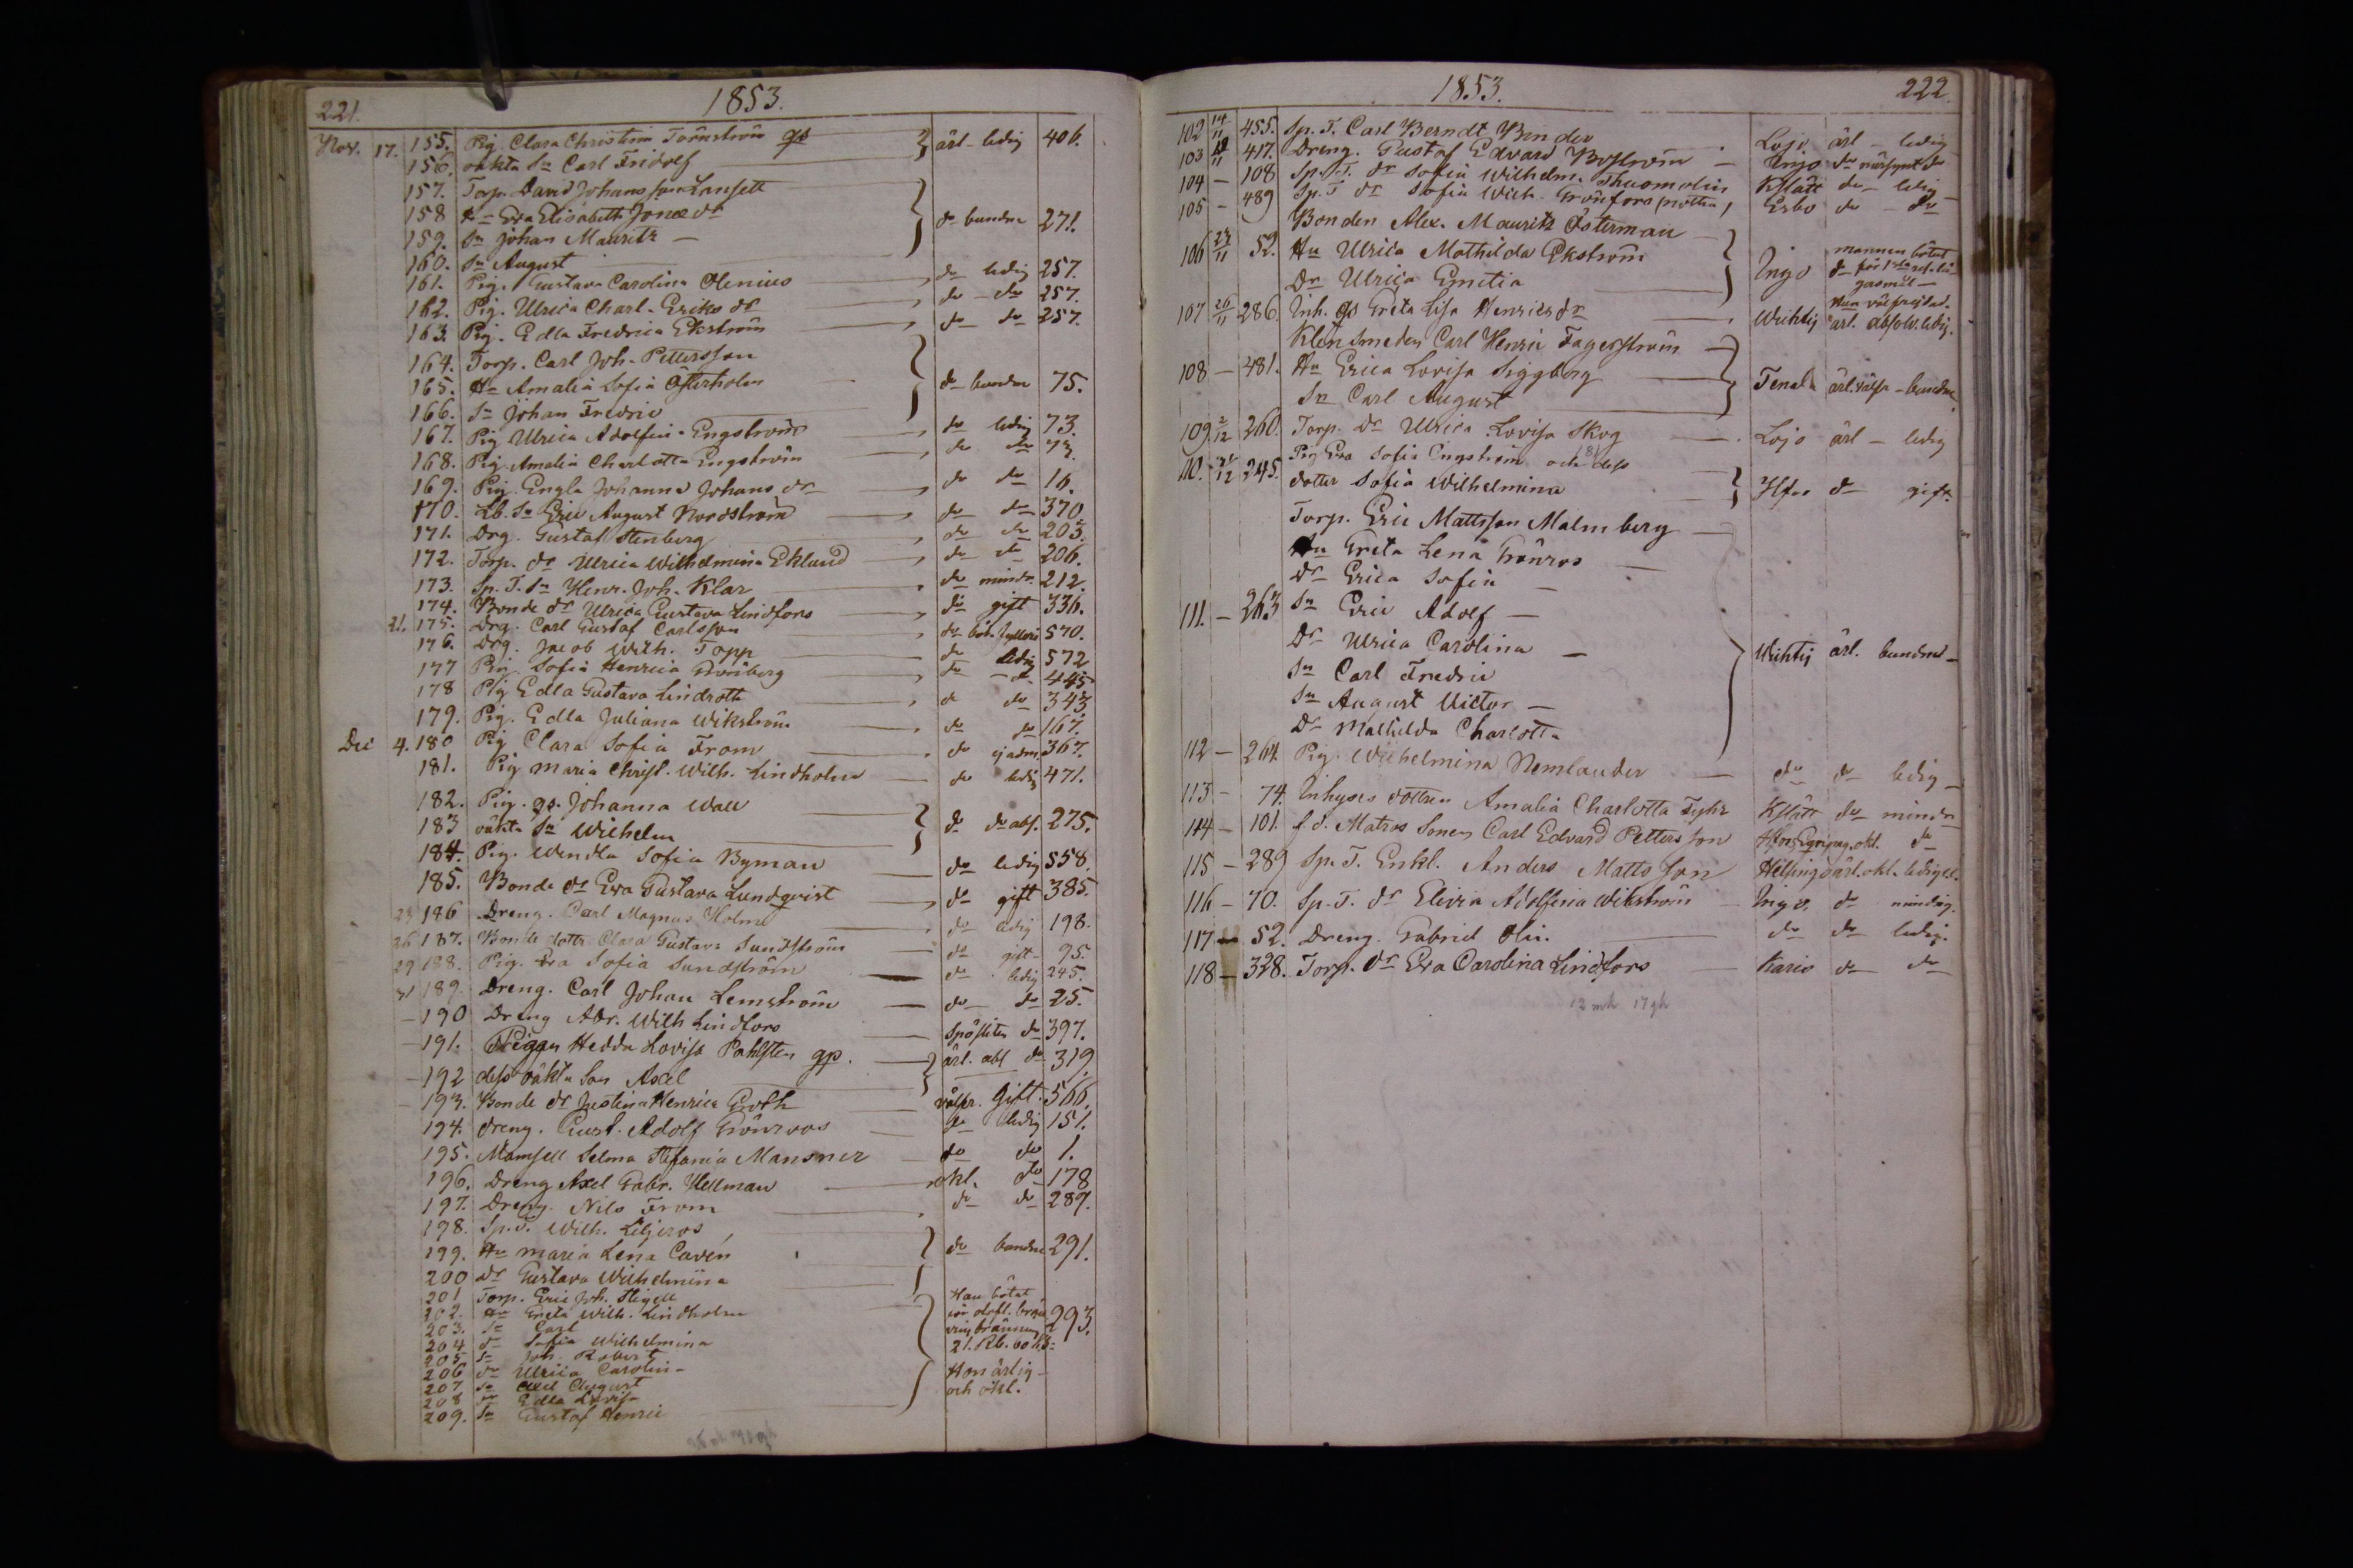 221. 1853.
Nov. 17. 155. Pig. Clara Christina Törnström qp ärl. ledig 406.
156. oäkta Sn Carl Fridolf
157. Torp. David Johansson Lansett
158 Hu Eva Elisabeth Jonæ dr do bundne 271.
159. Sn Johan Mauritz —
160. Sn August
161. Pig. Gustava Carolina Olenius do ledig 257.
162. Pig. Ulrica Charl. Eriks dr do do 257.
163. Pig. Edla Fredrica Ekström do do 257.
164. Torp. Carl Joh. Pettersson
165. Hu Amalia Sofia Österholm do bundne 75.
166. Sn Johan Fredric
167. Pig Ulrica Adolfin. Engström do ledig 73.
168. Pig. Amalia Charlotta Engström do do 73.
169. Pig. Engla Johanna Johans dr do do 16.
170. Lb. Sn Eric August Nordström do do 370.
171. Drg. Gustaf Stenberg do do 203.
172. Torp. dr Ulrica Wilhelmina Eklund do do 206.
173. Sp. T. Sn Henr. Joh. Klar do mindr. 212.
174. Bonde dr Ulrica Gustava Lindfors do gift 336.
21. 175. Drg. Carl Gustaf Carlsson do 570.
176. Drg. Jacob Wilh. Topp do ledig 572
177 Pig Sofia Henrica Grönberg do do 445
178 Pig Edla Gustava Lindroth do do 343
179. Pig. Edla Juliana Wikström do do 167.
Dec 4. 180 Pig Clara Sofia From do ej adm. 367.
181. Pig Maria Christ. Wilh. Lindholm do ledig 471.
182. Pig. qp. Johanna Wall
183 oäkta Sn Wilhelm do do abs. 275.
184. Pig. Wendla Sofia Byman do ledig 558.
185. Bonde dr Eva Gustava Lundqvist do gift 385.
23 186 Dreng. Carl Magnus Holm do ledig 198.
26 187. Bonde dottr. Clara Gustava Sundström do gift 95.
29 188. Pig. Eva Sofia Sundström do ledig 245.
31 189. Dreng. Carl Johan Lemström do do 25.
— 190 Dreng Abr. Wilh Lindfors do 397.
— 191. Pigan Hedda Lovisa Pahlsten qp. ärl. abs do 319.
— 192 dess oäkta Son Axel
— 193. Bonde dr Justina Henrica Groth välfr. Gift. 566.
194. dreng. Gust. Adolf Grönroos do ledig 151.
195. Mamsell Selma Stefania Mansner do do 1.
196. Dreng Axel Gabr. Hellman okl. do 178
197. Dreng. Nils From do do 287.
198. Sp. T. Wilh. Liljeros
199. Hu Maria Lena Caven do bundne 291.
200 Dr Gustava Wilhelmina
201 Torp. Eric Joh. Stigell Han bötat
202. Hu Greta Wilh. Lindholm för olofl. brän
203. Sn Carl vinsbränning 293.
204 dr Sofia Wilhelmina 21. Rb. 60 k.
205 Sn Joh. Robert
206 dr Ulrica Carolin. Hon ärlig
207 Sn Axel August och okl.
208 dr Edla Lovisa
209. Sn Gustaf Henric
1853. 222.
102 14/11 455. Sp. T. Carl Berndt Binder Lojo. ärl — ledig
103 18/11 417. Dreng. Gustaf Edvard Boström — Ingo do do
104 — 108 Sp. T. dr Sofia Wilhelm. Thuomolin Kslätt do — ledig
105 — 489 Sp. T dr Sofia Wilh. Grönfors Esbo do — do
Bonden Alex. Mauritz Österman
106 52. Hu Ulrica Mathilda Ekström Ingo mannen bötat
Dr Ulrica Emilia do för 1sta
Hon välfrejdad.
107 26/11 286. Inh. qp Greta Lisa Henrics dr Wichtis ärl. absolv. ledig.
Klensmeden Carl Henric Fagerström
108 — 481. Hu Erica Lovisa Siggberg Tenala ärl. välfr — bundne.
Sn Carl August
109. 2/12 260. Torp. Dr Ulrica Lovisa Skog Lojo ärl — ledig
110. 245. Pig Eva Sofia Engström och dess
dotter Sofia Wilhelmina Hfors do gift.
Torp. Eric Mattsson Malmberg
Hu Greta Lena Grönroos
dr Erica Sofia
111. — 263 Sn Eric Adolf —
Dr Ulrica Carolina — Wichtis ärl. bundne —
Sn Carl Fredric
Sn August Victor —
Dr Mathilda Charlotta
112 — 264. Pig. Wilhelmina Nemlander do do ledig —
113 — 74. Inhyses dottren Amalia Charlotta Fyhr Kslätt do mindr
114 — 101. f. d. Matros Sonen Carl Edvard Pettersson do
115 — 289 Sp. T. Enkl. Anders Mattsson Helsinge ärl. okl. ledig
116 — 70. Sp. T. dr Elivia Adolfina Wikström Ingo. do mindrig.
117 — 52. Dreng. Gabriel Olin. do do ledig.
118 — 328. Torp. dr Eva Carolina Lindfors Karis do do
12 mk 17 qk